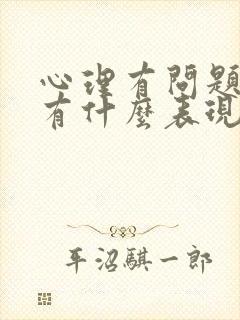 心理有問題
有什麼表現
平沼騏一郎